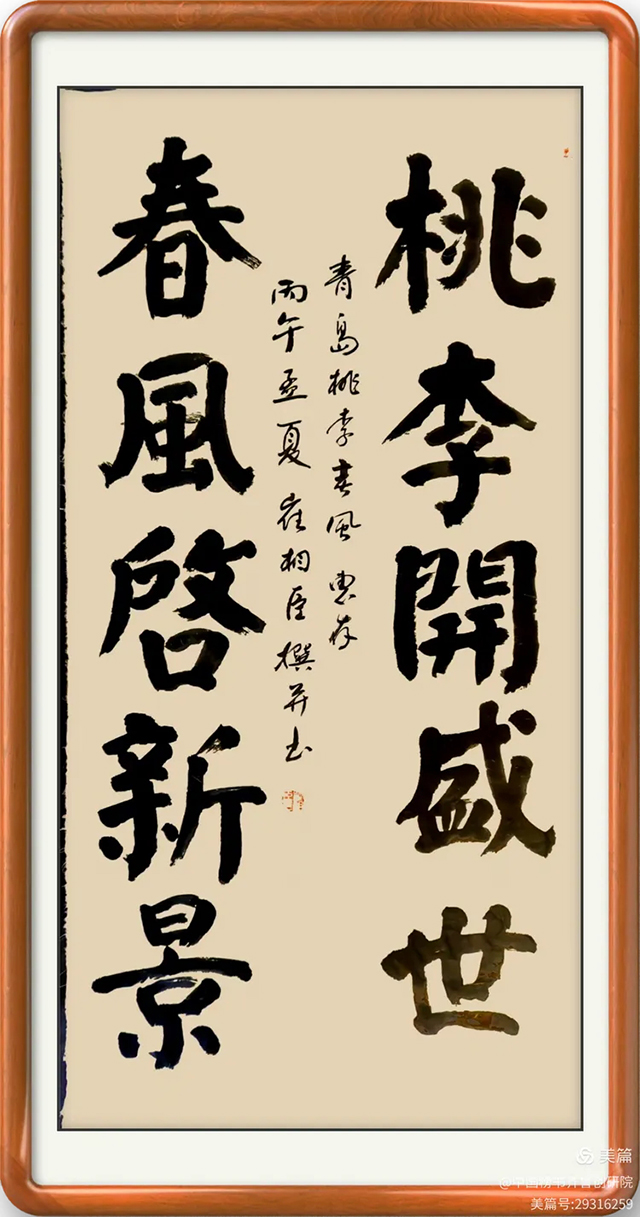 桃李開盛世
青島桃李春風惠存
丙午孟夏崔相臣撰并书
春風啓新景
美篇
美篇号:29316259